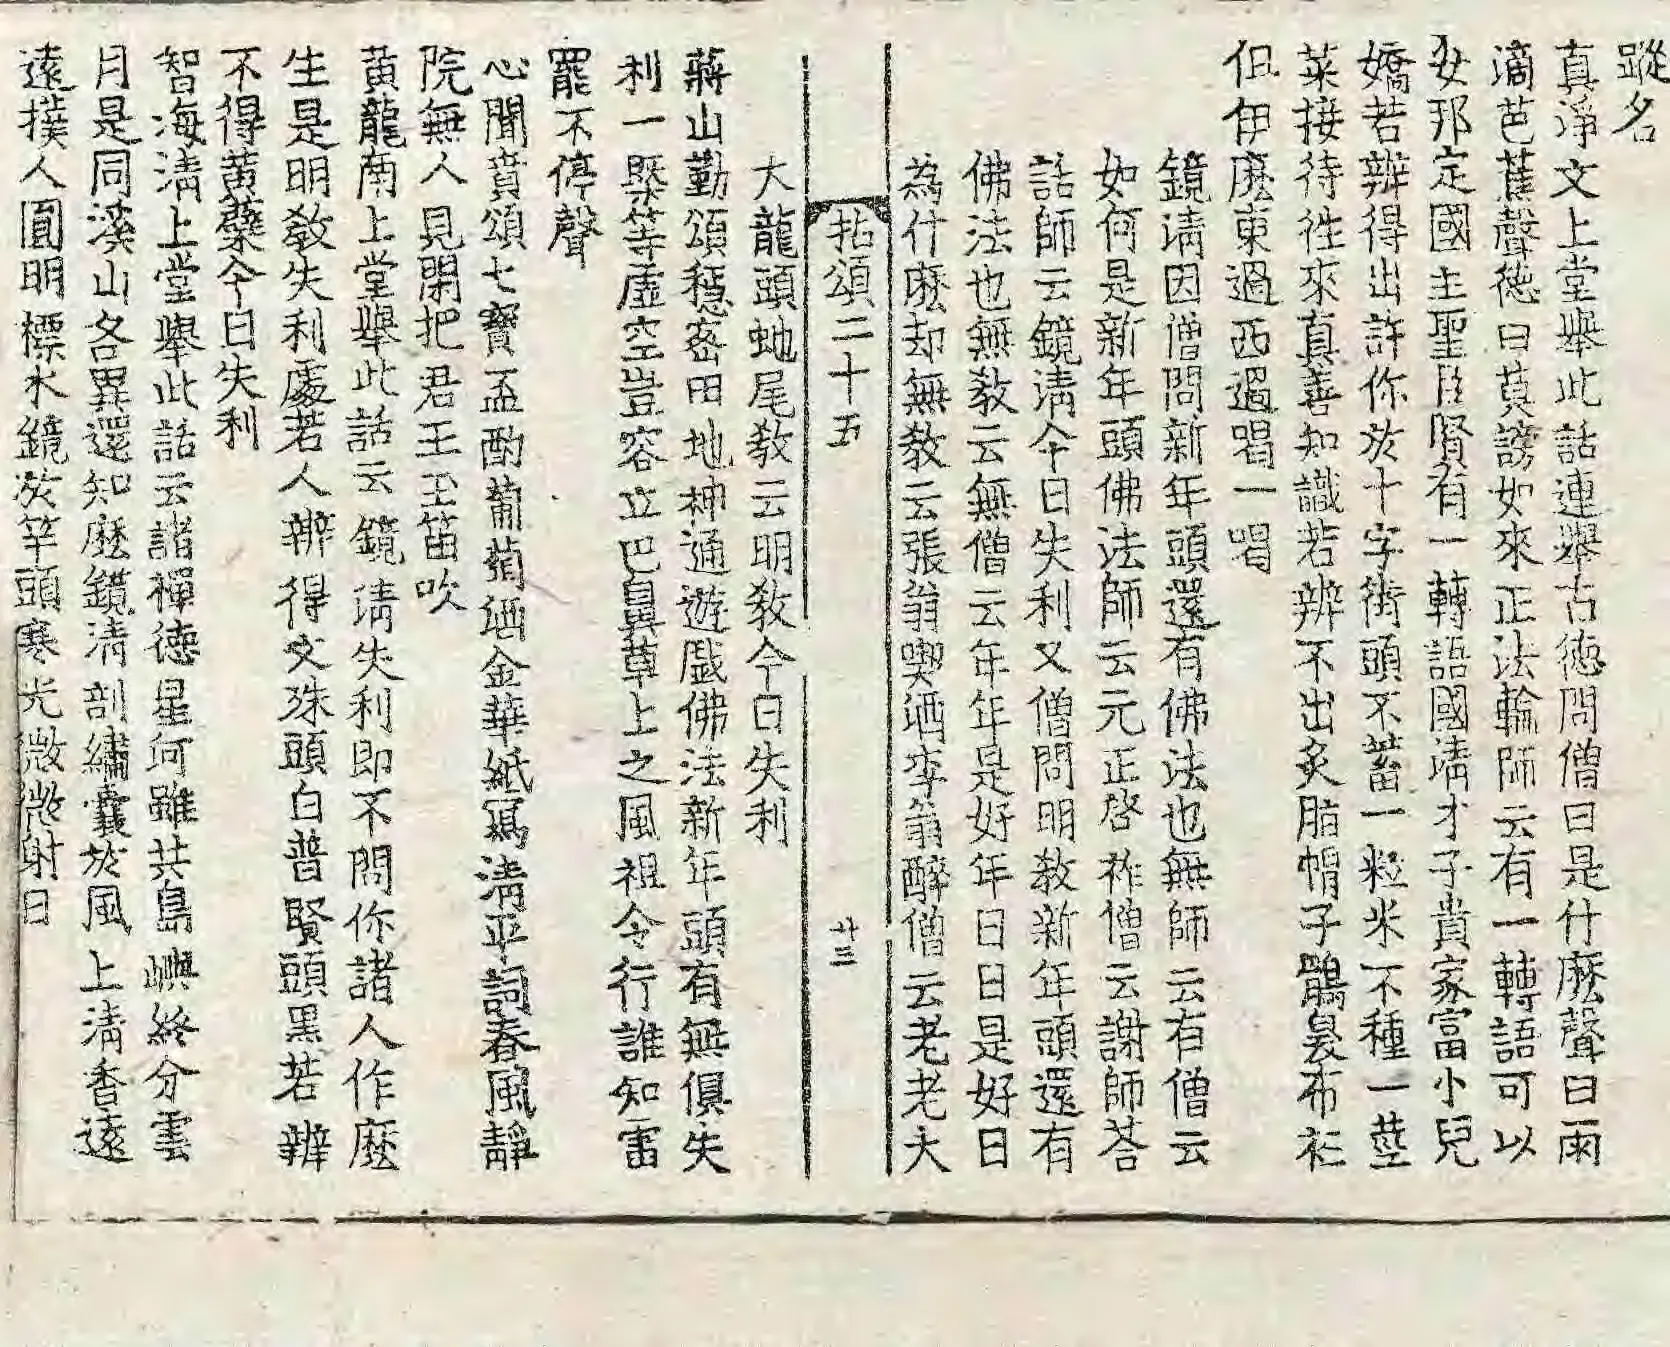 蹤名
真淨文上堂舉此話連舉古德問僧曰是什麽聲曰雨
滴芭蕉聲德曰莫謗如來正法輪師云有一轉語可以
安邦定國主聖臣賢有一轉語國淸才子貴家富小兒
嬌若辨得出許你於十字街頭不蓄一粒米不種一莖
菜接待徃來真善知識若辨不出炙脂帽子鶻臭布衫
但伊麽東過西過喝一喝
鏡淸因僧問新年頭還有佛法也無師云有僧云
如何是新年頭佛法師云元正啓祚僧云謝師荅
話師云鏡淸今日失利又僧問明敎新年頭還有
佛法也無敎云無僧云年年是好年日日是好日
為什麽却無敎云張翁喫酒李翁醉僧云老老大
拈頌二十五
廿三
大龍頭虵尾敎云明敎今日失利
蔣山勤頌穩密田地神通遊戲佛法新年頭有無俱失
利一槩等虛空豈容立巴鼻草上之風祖令行誰知雷
罷不停聲
心聞賁頌七寶盃酌葡萄酒金華紙寫淸平詞春風靜
院無人見閑把君王玉笛吹
黃龍南上堂舉此話云鏡淸失利即不問你諸人作麽
生是明敎失利處若人辨得文殊頭白普賢頭黑若辨
不得黃蘗今日失利
智海淸上堂舉此話云諸禪德星河雖共島嶼終分雲
月是同溪山各異還知麽鏡淸剖繡囊於風上淸香遠
遠撲人圓明標水鏡於竿頭寒光微微射日